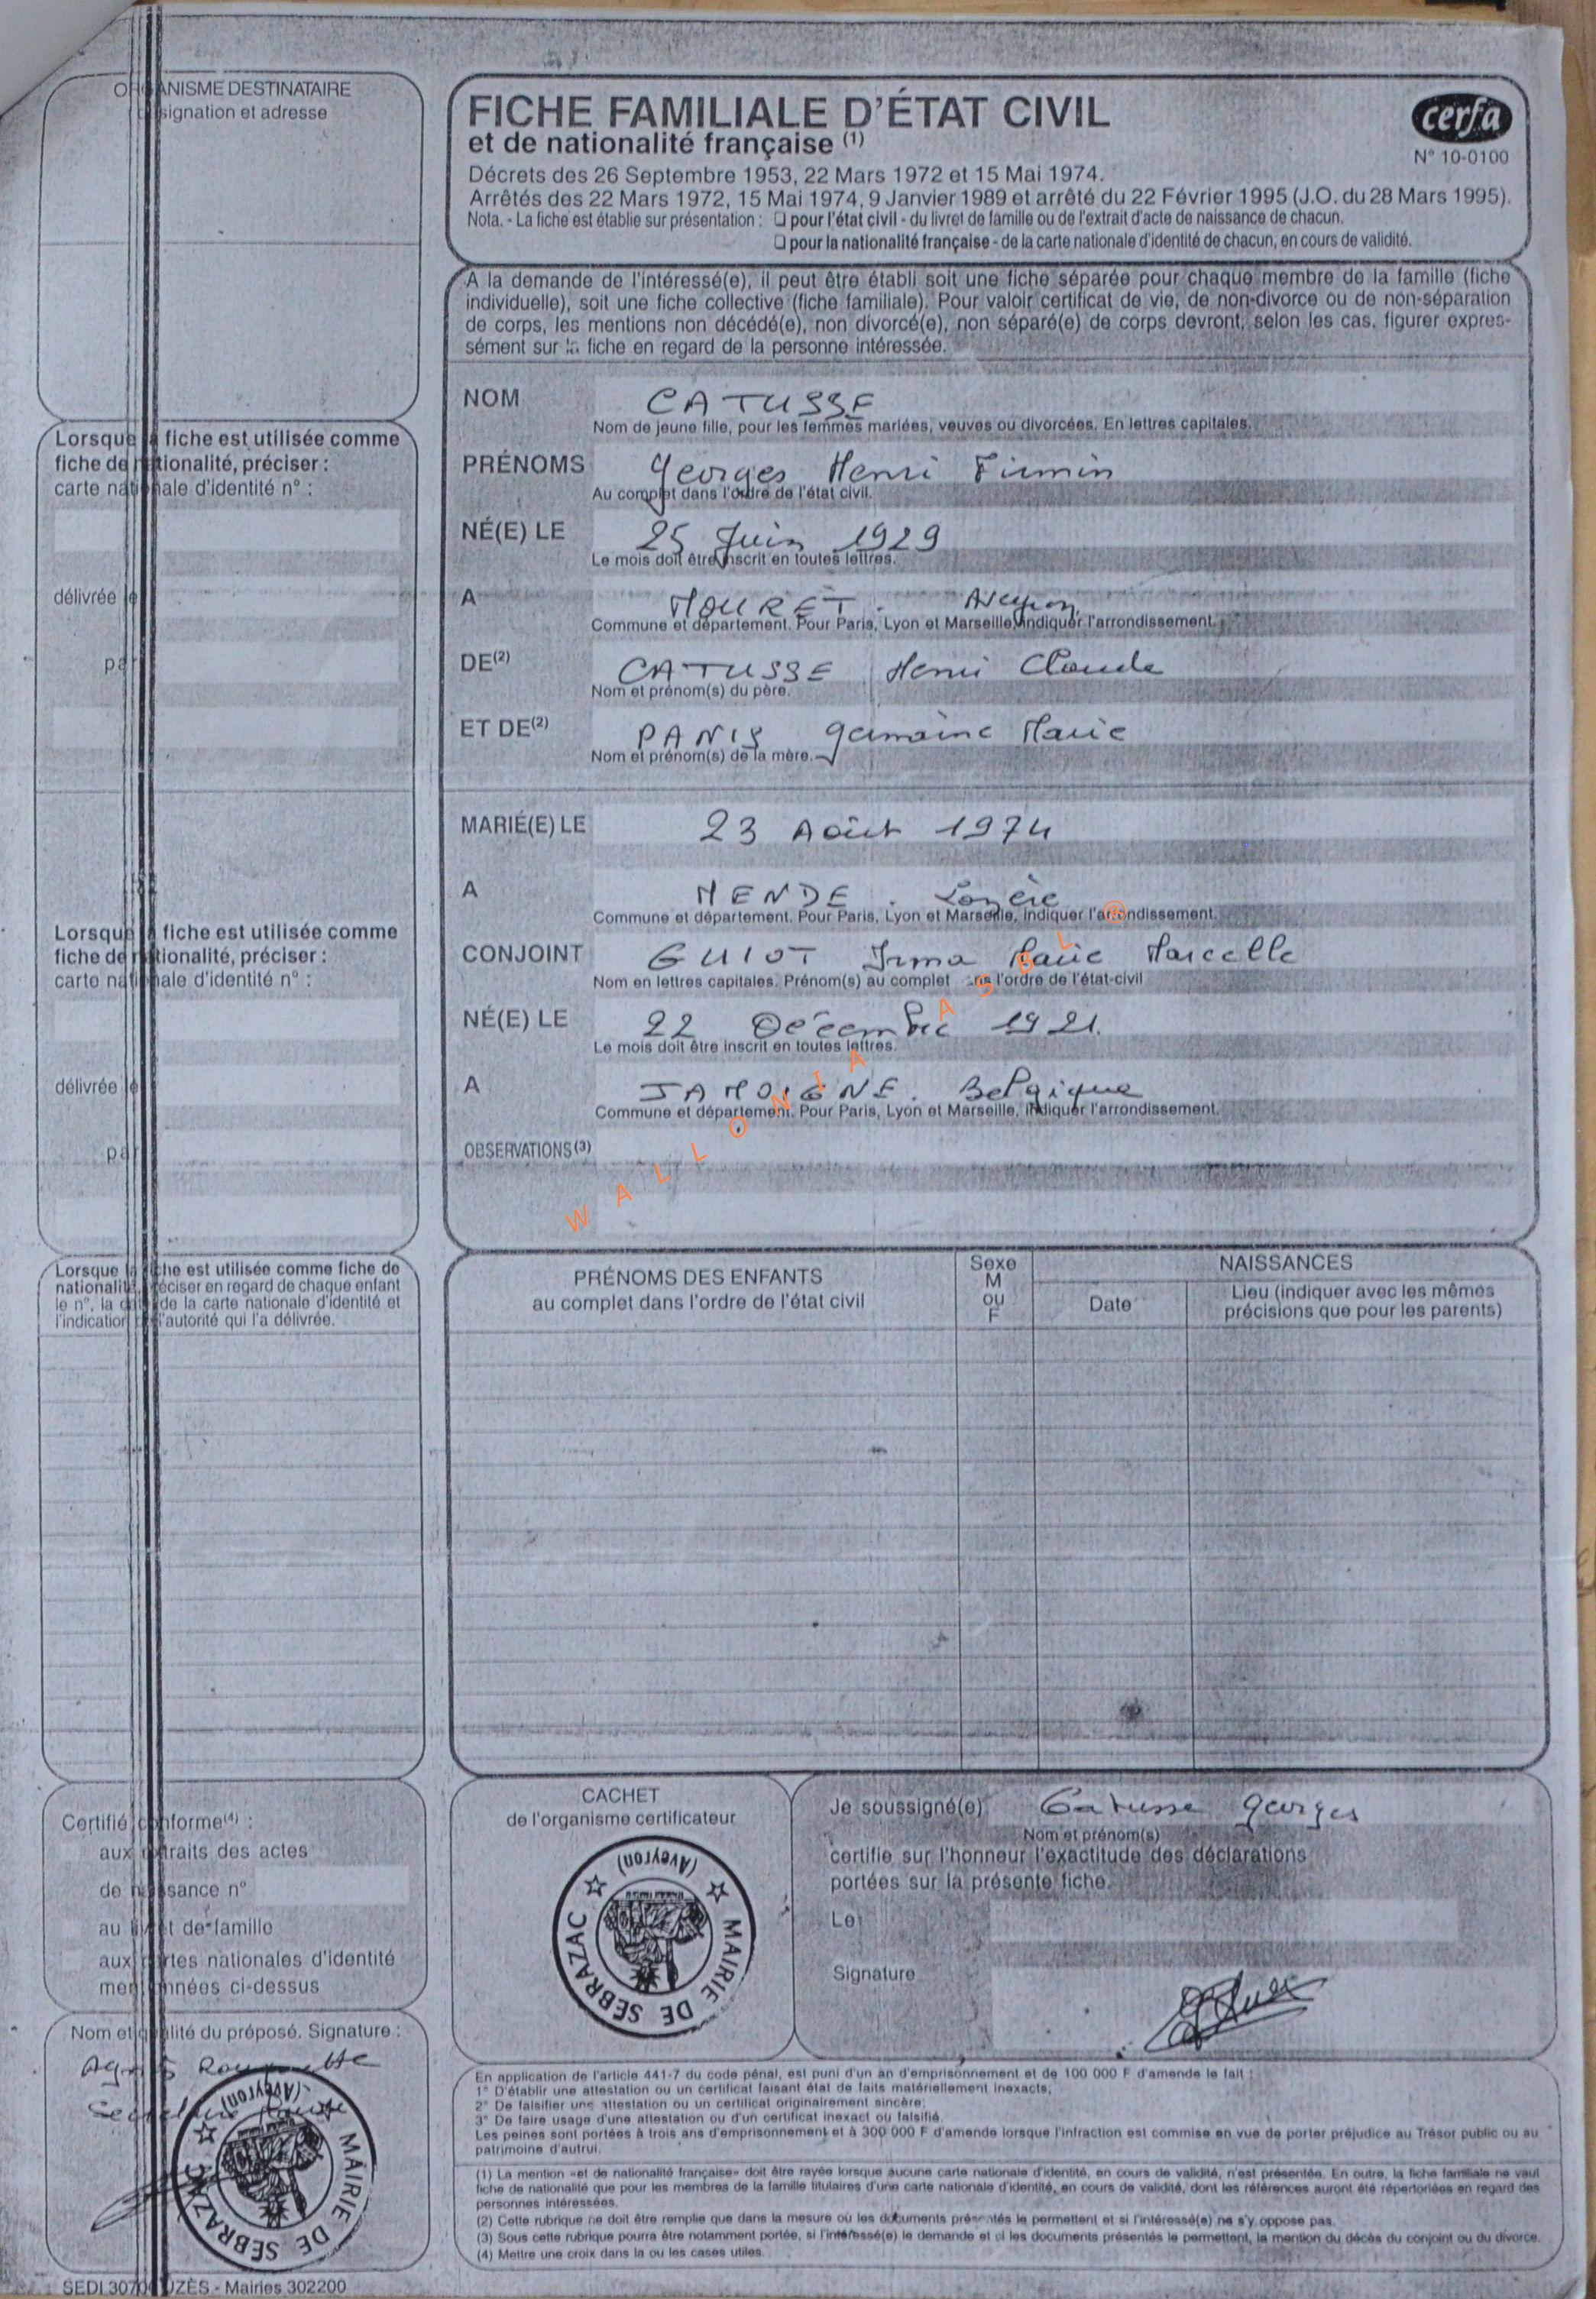 ORGANISME DESTINATAIRE
signation et adresse
FICHE FAMILIALE D'ÉTAT CIVIL
et de nationalité française (1)
cerfa
N° 10-0100
Décrets des 26 Septembre 1953, 22 Mars 1972 et 15 Mai 1974.
Arrêtés des 22 Mars 1972, 15 Mai 1974, 9 Janvier 1989 et arrêté du 22 Février 1995 (J.O. du 28 Mars 1995).
Nota. - La fiche est établie sur présentation : ❏ pour l'état civil - du livret de famille ou de l'extrait d'acte de naissance de chacun.
❏ pour la nationalité française - de la carte nationale d'identité de chacun, en cours de validité.
A la demande de l'intéressé(e), il peut être établi soit une fiche séparée pour chaque membre de la famille (fiche
individuelle), soit une fiche collective (fiche familiale). Pour valoir certificat de vie, de non-divorce ou de non-séparation
de corps, les mentions non décédé(e), non divorcé(e), non séparé(e) de corps devront, selon les cas, figurer expres-
sément sur la fiche en regard de la personne intéressée.
NOM CATUSSE
Nom de jeune fille, pour les femmes mariées, veuves ou divorcées. En lettres capitales.
PRÉNOMS Georges Henri Firmin
Au complet dans l'ordre de l'état civil.
NÉ(E) LE 25 Juin 1929
Le mois doit être inscrit en toutes lettres.
A MOURET. Aveyron
Commune et département. Pour Paris, Lyon et Marseille, indiquer l'arrondissement.
DE(2) CATUSSE Henri Claude
Nom et prénom(s) du père.
ET DE(2) PANIS Germaine Marie
Nom et prénom(s) de la mère.
MARIÉ(E) LE 23 Août 1974
A MENDE. Lozère
Commune et département. Pour Paris, Lyon et Marseille, indiquer l'arrondissement.
CONJOINT GUIOT Irma Marie Marcelle
Nom en lettres capitales. Prénom(s) au complet dans l'ordre de l'état-civil
NÉ(E) LE 22 Décembre 1921.
Le mois doit être inscrit en toutes lettres.
A JAMOIGNE. Belgique
Commune et département. Pour Paris, Lyon et Marseille, indiquer l'arrondissement.
OBSERVATIONS(3)
WALLONIA ASBL ®
Lorsque la fiche est utilisée comme
fiche de nationalité, préciser :
carte nationale d'identité n° :
délivrée le
par
Lorsque la fiche est utilisée comme
fiche de nationalité, préciser :
carte nationale d'identité n° :
délivrée le
par
Lorsque la fiche est utilisée comme fiche de
nationalité, préciser en regard de chaque enfant
le n°, la date de la carte nationale d'identité et
l'indication de l'autorité qui l'a délivrée.
PRÉNOMS DES ENFANTS
au complet dans l'ordre de l'état civil
Sexe
M
ou
F
NAISSANCES
Date
Lieu (indiquer avec les mêmes
précisions que pour les parents)
Certifié conforme(4) :
aux extraits des actes
de naissance n°
au livret de famille
aux cartes nationales d'identité
mentionnées ci-dessus
Nom et qualité du préposé. Signature :
MAIRIE DE SEBRAZAC
(Aveyron)
SEDI 30700 UZÈS - Mairies 302200
CACHET
de l'organisme certificateur
MAIRIE DE SEBRAZAC
(Aveyron)
Je soussigné(e) Catusse Georges
Nom et prénom(s)
certifie sur l'honneur l'exactitude des déclarations
portées sur la présente fiche.
Le
Signature
En application de l'article 441-7 du code pénal, est puni d'un an d'emprisonnement et de 100 000 F d'amende le fait :
1° D'établir une attestation ou un certificat faisant état de faits matériellement inexacts;
2° De falsifier une attestation ou un certificat originairement sincère;
3° De faire usage d'une attestation ou d'un certificat inexact ou falsifié.
Les peines sont portées à trois ans d'emprisonnement et à 300 000 F d'amende lorsque l'infraction est commise en vue de porter préjudice au Trésor public ou au
patrimoine d'autrui.
(1) La mention «et de nationalité française» doit être rayée lorsque aucune carte nationale d'identité, en cours de validité, n'est présentée. En outre, la fiche familiale ne vaut
fiche de nationalité que pour les membres de la famille titulaires d'une carte nationale d'identité, en cours de validité, dont les références auront été répertoriées en regard des
personnes intéressées.
(2) Cette rubrique ne doit être remplie que dans la mesure où les documents présentés le permettent et si l'intéressé(e) ne s'y oppose pas.
(3) Sous cette rubrique pourra être notamment portée, si l'intéressé(e) le demande et si les documents présentés le permettent, la mention du décès du conjoint ou du divorce.
(4) Mettre une croix dans la ou les cases utiles.